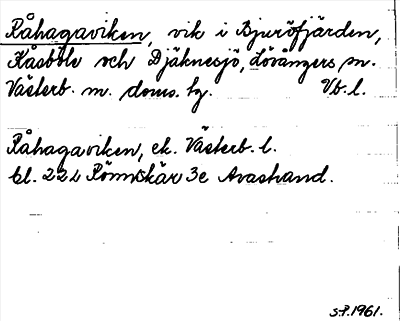 Råhagaviken, vik i Bjuröfjärden,
Kåsböle och Djäknesjö, Lövångers sn.
Västerb. m. doms. hg. Vb. l.
Råhagaviken, ek. Västerb. l.
bl. 222 Rönnskär 3e Avastrand.
S.P. 1961.